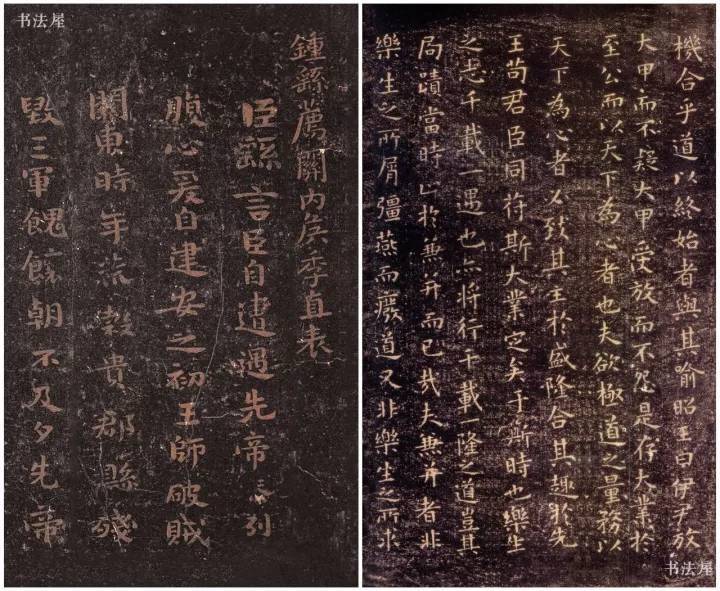 书法屋
鍾繇薦關内矦季直表
臣繇言臣自遭遇先帝忝列
腹心爰自建安之初王師破賊
關東時年荒穀貴郡縣殘
毁三軍餽饟朝不及夕先帝
機合乎道以終始者與其喻昭王曰伊尹放
大甲而不疑大甲受放而不怨是存大業於
至公而以天下為心者也夫欲極道之量務以
天下為心者必致其主於盛隆合其趣於先
王苟君臣同符斯大業定矣于斯時也樂生
之志千載一遇也亦將行千載一隆之道豈其
局蹟當時止於兼并而已哉夫兼并者非
樂生之所屑彊燕而廢道又非樂生之所求
书法屋